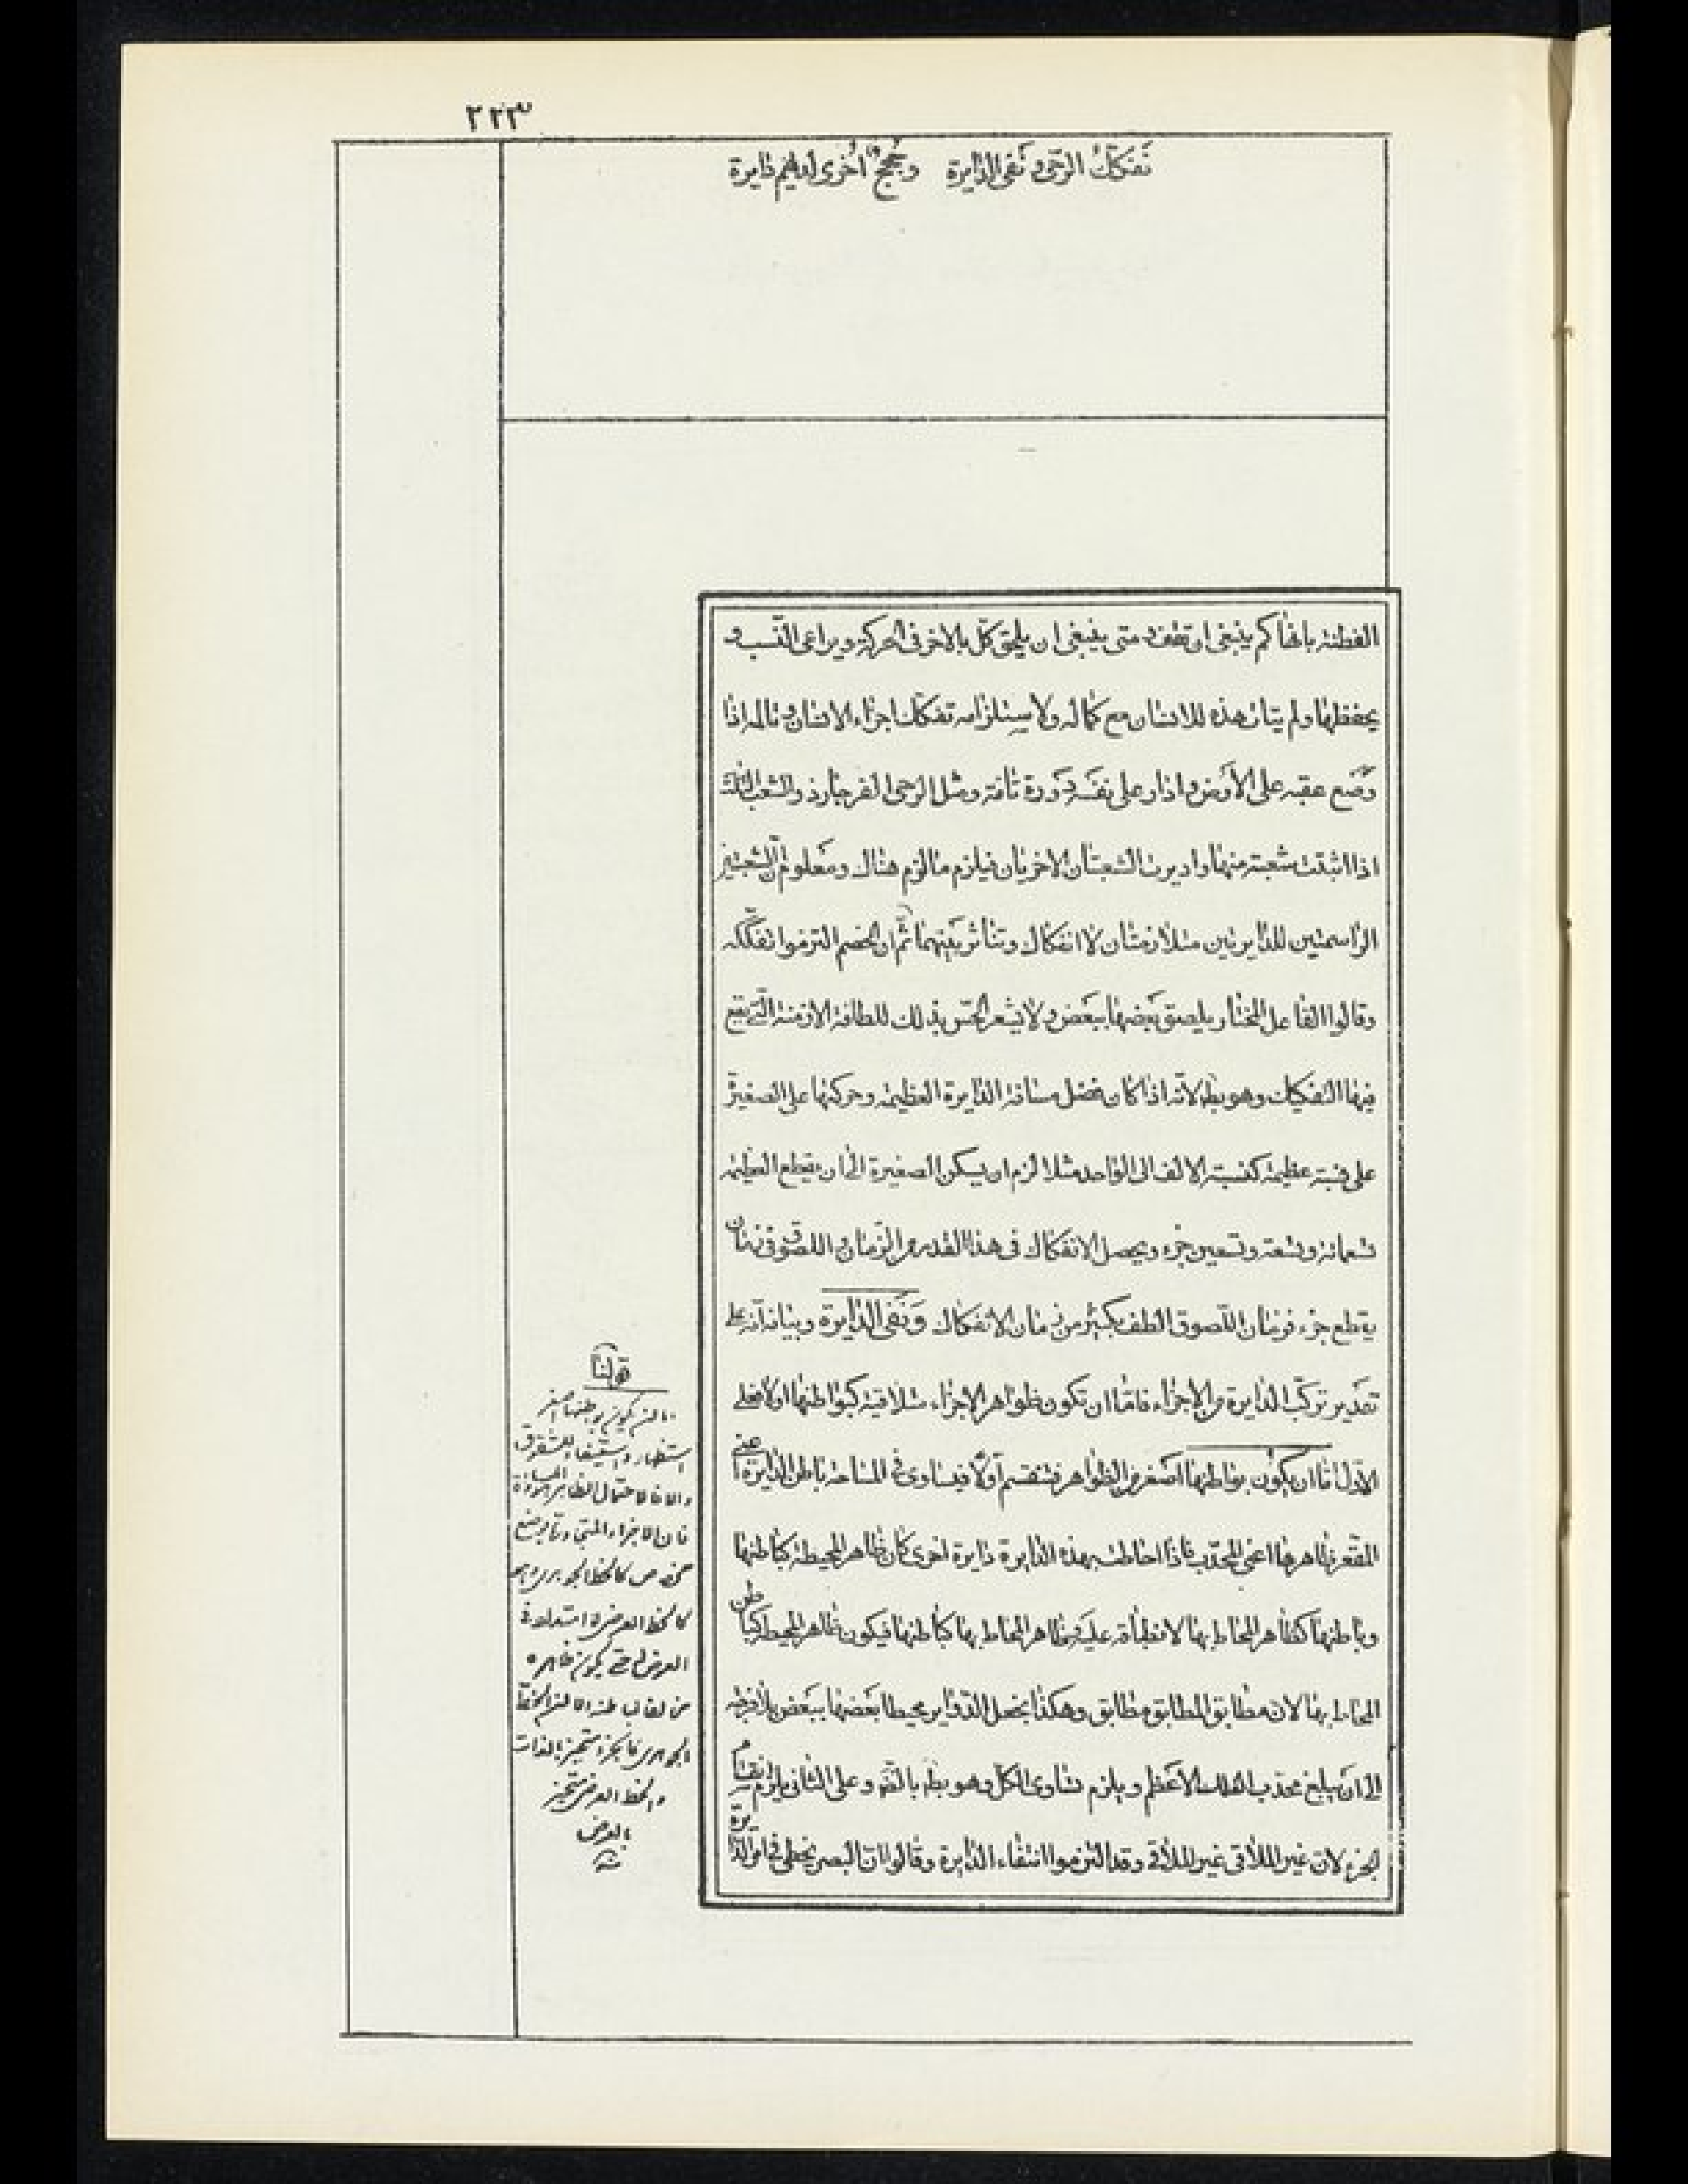 ٢٢٣
تَفَكّكُ الرّحى و نَفى الدّايرة وحُجج اُخرى لديهم دايرة
الفطنة بانها كم ينبغى ان تقف و متى ينبغى ان يلحق كلّ بالاخر فى الحركة ويراعى النّسب و
يحفظها ولم يتات هذه للانسان مع كماله ولاستلزامه تفكّك اجزاء الانسان و تالمه اذا
وَضَع عقبه على الأرض و ادار على نفسه دورة تامّة ومثل الرحى الفرجار ذو الشعب الثلث
اذا اثبتت شعبة منها واديرت الشعبتان الاخريان فيلزم ما لزم هناك ومعلوم انّ الشعبتين
الراسمتين للدايرتين متلازمتان لا انفكاك وتناثر بينهما ثمّ ان الخصم التزموا تفككه
وقالوا الفاعل المختار يلصق بعضها ببعض و لا يشعر الحسّ بذلك للطافة الازمنة الّتى يقع
فيها التفكيك وهو بط لانّه اذا كان فضل مسافة الدايرة العظيمة وحركتها على الصغيرة
على نسبة عظيمة كنسبة الالف الى الواحد مثلا لزم ان يسكن الصغيرة الى ان يقطع العظيمة
تسعمائة وتسعة وتسعين جزء ويحصل الانفكاك فى هذا القدر من الزمان و اللصوق فى زمان
يقطع جزء فزمان اللّصوق الطف بكثير من زمان الانفكاك وَنَفى الدّايرة وبيانه انّه على
تقدير تركّب الدايرة من الاجزاء فامّا ان تكون ظواهر الاجزاء متلاقية كبواطنها اولا فعلى
الاوّل امّا ان يكون بواطنها اصغر من الظواهر فتنقسم اولا فيساوى فى المساحة باطن الدايرة اعنى
المقعر ظاهرها اعنى المحدّب فاذا احاطت بهذه الدايرة دايرة اخرى كان ظاهر المحيطة كباطنها
وباطنها كظاهر المحاط بها لانطباقه عليه وظاهر المحاط بها كباطنها فيكون ظاهر المحيط كباطن
المحاط بها لان مطابق المطابق مطابق وهكذا يجعل الدّواير محيطا بعضها ببعض بلا فرجة
الى ان يبلغ محدّب الفلك الاعظم ويلزم تساوى الكلّ وهو بط بالضّرورة وعلى الثانى يلزم انقسام
الجزء لان غير الملاقى غير الملاقى وقد التزموا انتفاء الدايرة وقالوا انّ البصر يخطى فى امر الدّايرة
قولنا
امّا ان يكون بواطنها اصغر
استظهار واستيفاء للشقوق
والا فالاحتمال الظاهر المساواة
فان الاجزاء
كالخط الجوهرى
كالخط العرضى
العرض حتى يكون ظاهره
الجوهرى فالجزء متحيز بالذات
والخط العرضى متحيز
بالعرض
منه